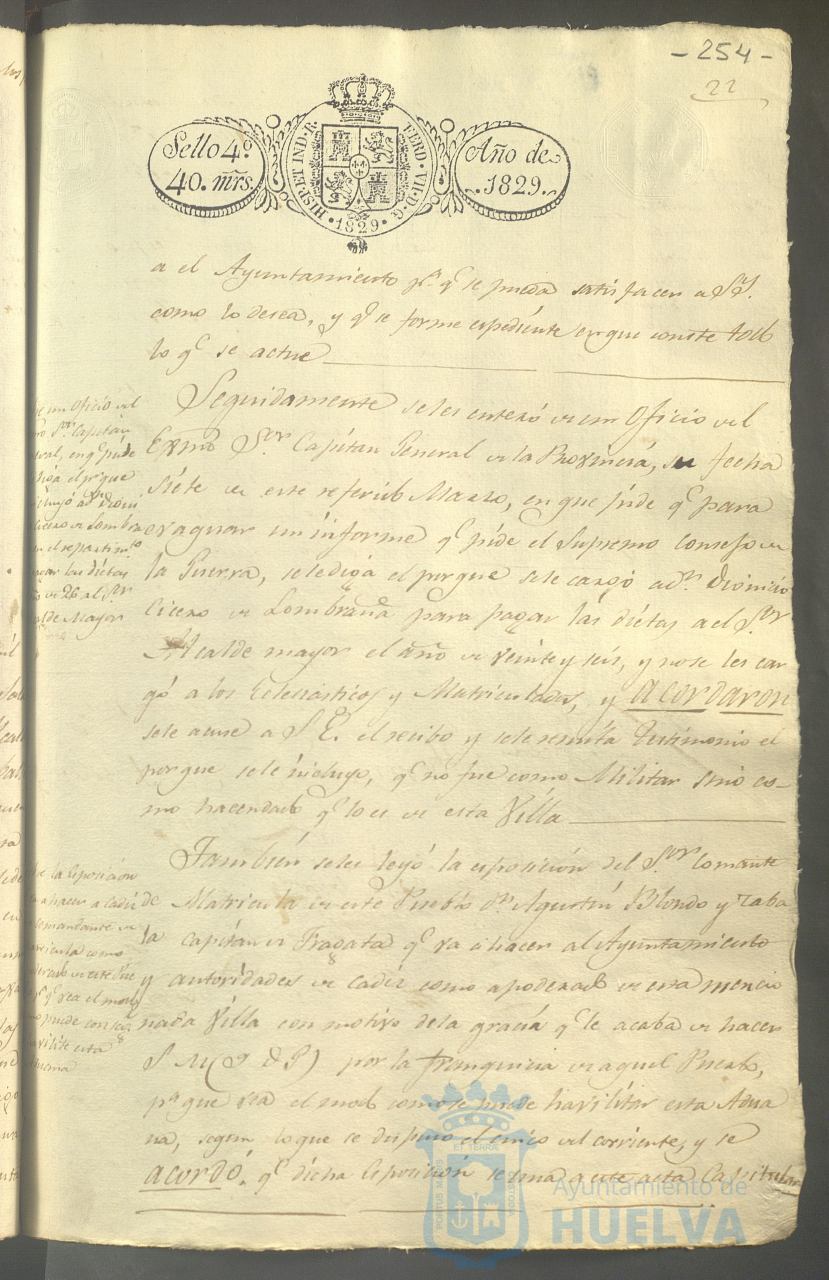 - 254 -
22
Sello 4º
40. mrs.
HISP. ET IND. R. FERD. VII. D. G.
· 1829 ·
Año de
1829.
a el Ayuntamiento pª. qe se pueda satisfacer a S.Y.
como lo desea, y qe se forme espediente en que conste todo
lo qe se actue
Seguidamente se les enteró de un Oficio del
Exmo Sor. Capitan General de la Provincia, su fecha
siete de este referido Marzo, en que pide qe para
evaquar un informe qe pide el Supremo Consejo de
la Guerra, se le diga el porque se le cargó a dn. Dionicio
Cicero de Lombraña para pagar las dietas a el Sor
Alcalde mayor el año de veinte y seis, y no se les car
gó a los Eclesiasticos y Matriculados, y acordaron
se le acuse a S.E. el recibo y se le remita testimonio el
porque se le incluyo, qe no fue como Militar sino co-
mo hacendado qe lo es de esta Villa
También se les leyó la esposición del Sor Comante
de Matricula de este Pueblo dn. Agustin Blondo y Zaba
la capitan de Fragata qe va a hacer al Ayuntamiento
y autoridades de Cadiz como apoderado de esta mencio
nada Villa con motivo de la gracia qe le acaba de hacer
S M (Q D G) por la franquicia de aquel Puerto,
pª que vea el modo como se puede havilitar esta Adua
na, segun lo que se dispuso el cinco del corriente, y se
acordó, qe dicha esposición se una a este acta Capitular
de un Oficio del
Sor. Capitan
en qe pide
diga el porque
Cicero de Lombraña
en el repartimto
pagar las dietas
de 26 al Sor
Alcalde Mayor
de la esposición
a hacer a Cadiz
Comandante de
matricula como
apoderado de este Pue
qe vea el modo
como puede
havilite esta
Aduana
Ayuntamiento de
HUELVA